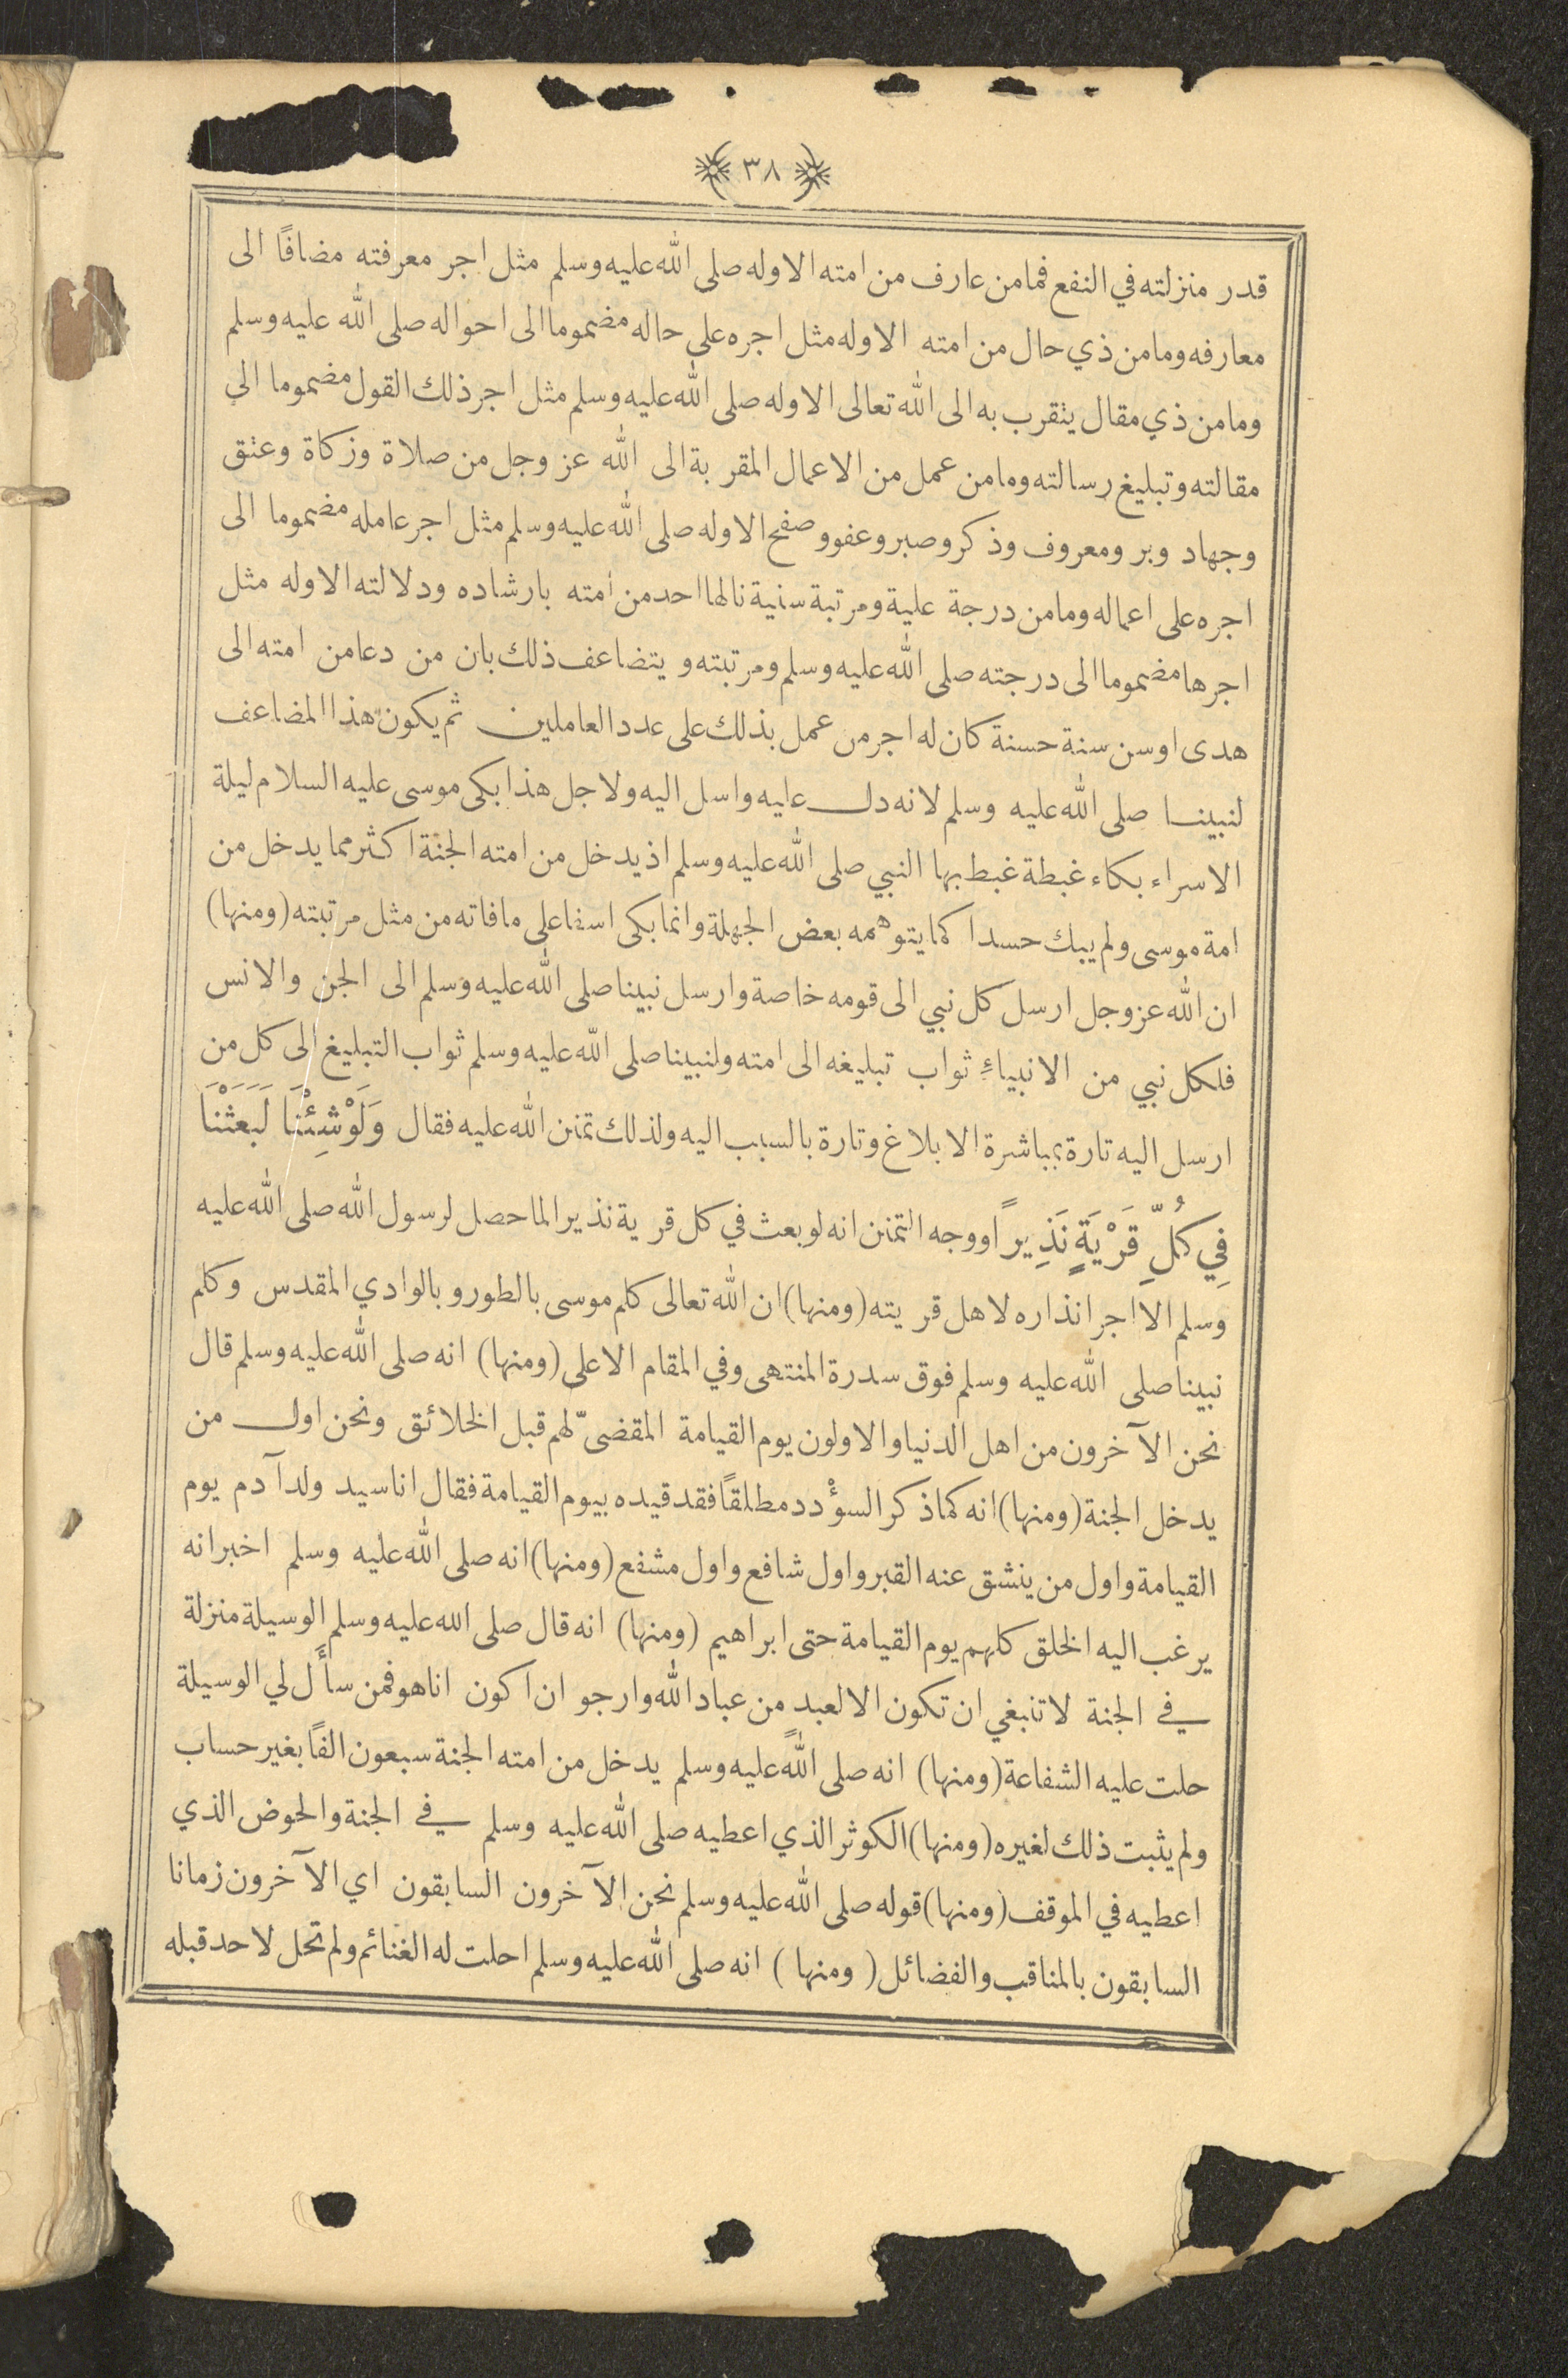 ٣٨
قدر منزلته في النفع فما من عارف من امته الا وله صلى الله عليه وسلم مثل اجر معرفته مضافًا الى
معارفه وما من ذي حال من امته الا وله مثل اجره على حاله مضموما الى احواله صلى الله عليه وسلم
وما من ذي مقال يتقرب به الى الله تعالى الا وله صلى الله عليه وسلم مثل اجر ذلك القول مضموما الى
مقالته وتبليغ رسالته وما من عمل من الاعمال المقربة الى الله عز وجل من صلاة وزكاة وعتق
وجهاد وبر ومعروف وذكر وصبر وعفو وصفح الا وله صلى الله عليه وسلم مثل اجر عامله مضموما الى
اجره على اعماله وما من درجة علية ومرتبة سنية نالها احد من امته بارشاده ودلالته الا وله مثل
اجرها مضموما الى درجته صلى الله عليه وسلم ومرتبته ويتضاعف ذلك بان من دعا من امته الى
هدى او سن سنة حسنة كان له اجر من عمل بذلك على عدد العاملين ثم يكون هذا المضاعف
لنبينا صلى الله عليه وسلم لانه دل عليه واسل اليه ولاجل هذا بكى موسى عليه السلام ليلة
الاسراء بكاء غبطة غبط بها النبي صلى الله عليه وسلم اذ يدخل من امته الجنة اكثر مما يدخل من
امة موسى ولم يبك حسدا كما يتوهمه بعض الجهلة وانما بكى اسفا على ما فاته من مثل مرتبته (ومنها)
ان الله عز وجل ارسل كل نبي الى قومه خاصة وارسل نبينا صلى الله عليه وسلم الى الجن والانس
فلكل نبي من الانبياءِ ثواب تبليغه الى امته ولنبينا صلى الله عليه وسلم ثواب التبليغ الى كل من
ارسل اليه تارة بمباشرة الابلاغ وتارة بالسبب اليه ولذلك تمنن الله عليه فقال وَلَوْ شِئْنَا لَبَعَثْنَا
فِي كُلِّ قَرْيَةٍ نَذِيرًا ووجه التمنن انه لو بعث في كل قرية نذير الما حصل لرسول الله صلى الله عليه
وسلم الا اجر انذاره لاهل قريته (ومنها) ان الله تعالى كلم موسى بالطور وبالوادي المقدس وكلم
نبينا صلى الله عليه وسلم فوق سدرة المنتهى وفي المقام الاعلى (ومنها) انه صلى الله عليه وسلم قال
نحن الآخرون من اهل الدنيا والاولون يوم القيامة المقضيّ لهم قبل الخلائق ونحن اول من
يدخل الجنة (ومنها) انه كما ذكر السؤْدد مطلقًا فقد قيده بيوم القيامة فقال انا سيد ولد آدم يوم
القيامة واول من ينشق عنه القبر واول شافع واول مشفع (ومنها) انه صلى الله عليه وسلم اخبر انه
يرغب اليه الخلق كلهم يوم القيامة حتى ابراهيم (ومنها) انه قال صلى الله عليه وسلم الوسيلة منزلة
في الجنة لا تنبغي ان تكون الا لعبد من عباد الله وارجو ان اكون انا هو فمن سأل لي الوسيلة
حلت عليه الشفاعة (ومنها) انه صلى الله عليه وسلم يدخل من امته الجنة سبعون الفًا بغير حساب
ولم يثبت ذلك لغيره (ومنها) الكوثر الذي اعطيه صلى الله عليه وسلم في الجنة والحوض الذي
اعطيه في الموقف (ومنها) قوله صلى الله عليه وسلم نحن الآخرون السابقون اي الآخرون زمانا
السابقون بالمناقب والفضائل (ومنها) انه صلى الله عليه وسلم احلت له الغنائم ولم تحل لاحد قبله